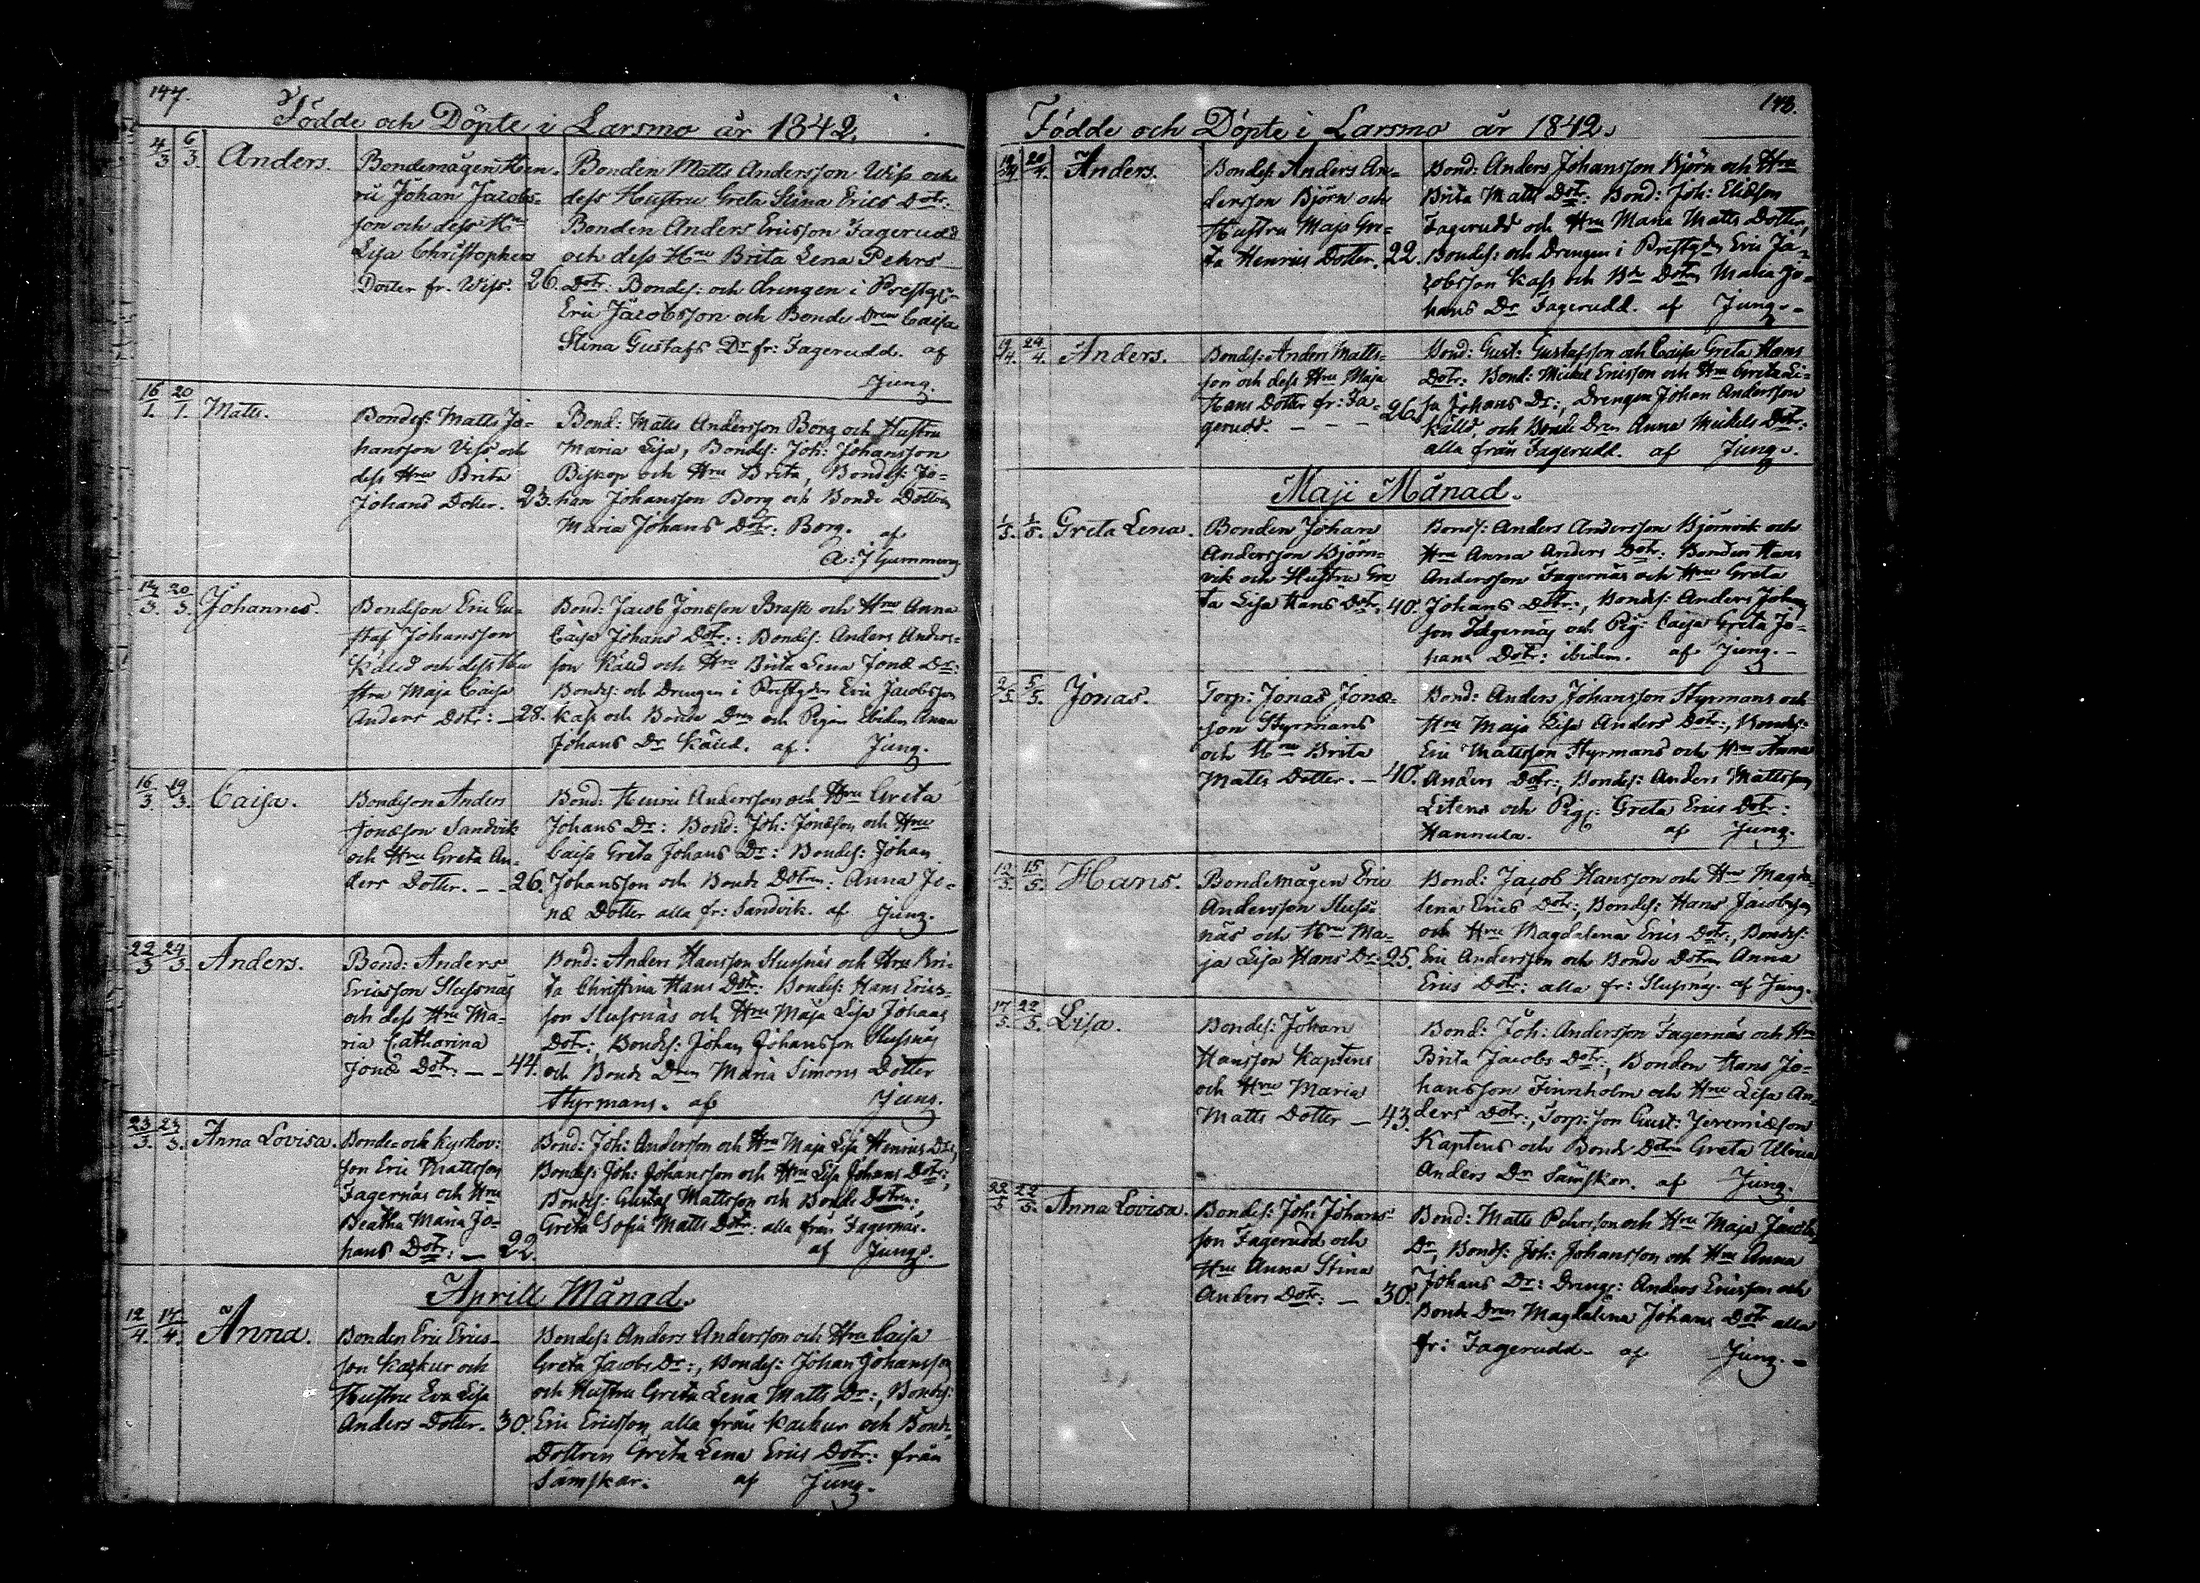 147.
Födde och Döpte i Larsmo år 1842.
4/3 6/3 Anders.
Bondemågen Hen-
ric Johan Jacobs-
son och dess Hru
Lisa Christophers
Dotter fr. Wiss. 26.
Bonden Matts Andersson Wiss och
dess Hustru Greta Stina Erics Dotr:
Bonden Anders Ericsson Fagerudd
och dess Hru Brita Lena Pehrs
Dotr: Bondes: och drengen i Prestg:
Eric Jacobsson och Bonde Dren Caisa
Stina Gustafs Dr fr: Fagerudd. af
Jung.
16/1. 20/1. Matts.
Bondes: Matts Jo-
hansson Viss och
dess Hru Brita
Johans Dotter. 23.
Bond: Matts Andersson Borg och Hustru
Maria Lisa, Bondes: Joh: Johansson
Biskop och Hru Brita, Bondes: Jo-
han Johansson Borg och Bonde Dottren
Maria Johans Dotr: Borg. af
A: J Gummerus
20/3. Johannes.
Bondeson Eric Gu-
staf Johansson
Käld och dess Hu
stru Maja Caisa
Anders Dotr: — 28.
Bond: Jacob Jonsson Brask och Hru Anna
Caisa Johans Dotr: : Bondes: Anders Anders-
son Käld och Hru Brita Lena Jonæ Dr:
Bondes: och Drengen i Prestgden Eric Jacobsson
Kass och Bonde Dren och Pigan Ibidem Anna
Johans Dr Käld. af. Jung.
16/3 19/3. Caisa.
Bondeson Anders
Jonæson Sandvik
och Hru Greta An-
ders Dotter. – – 26.
Bond: Henric Andersson och Hru Greta
Johans Dr: Bond: Joh: Jonæson och Hru
Caisa Greta Johans Dr: Bondes: Johan
Johansson och Bonde Dotren: Anna Jo-
næ Dotter alla fr: Sandvik. af Jung.
22/3 24/3. Anders.
Bond: Anders
Ericsson Slussnäs
och dess Hru Ma-
ria Catharina
Jonæ Dotr: – – 44.
Bond: Anders Hansson Slussnäs och Hru Bri-
ta Christina Hans Dotr: Bondes: Hans Erics-
son Slussnäs och Hru Maja Lisa Johans
Dotr:, Bondes: Johan Johansson Slussnäs
och Bonde Dren Maria Simons Dotter
Styrmans. af Jung.
23/3. Anna Lovisa.
Bonde- och Kyrkov:
son Eric Mattsson
Fagernäs och Hru
Beatha Maria Jo-
hans Dotr: — 22.
Bond: Joh: Andersson och Hru Maja Lisa Henrics Dr,
Bondes: Joh: Johansson och Hru Lisa Johans Dotr:,
Bondes: Gustaf Mattsson och Bonde Dotren:
Greta Sofia Matts Dotr: alla från Fagernäs.
af Jung.
Aprill Månad.
12/4. 17/4. Anna.
Bonden Eric Erics-
son Kackur och
Hustru Eva Lisa
Anders Dotter. 30.
Bondes: Anders Andersson och Hru Caisa
Greta Jacobs Dr:, Bondes: Johan Johansson
och Hustru Greta Lena Matts Dr:, Bondes:
Eric Ericsson, alla från Kackur och Bonde
Dottren Greta Lena Erics Dotr: från
Sämskar. af Jung.
148.
Födde och Döpte i Larsmo år 1842.
20/4. Anders.
Bondes: Anders An-
dersson Björn och
Hustru Maja Gre-
ta Henrics Dotter. 22.
Bond: Anders Johansson Björn och Hru
Brita Matts Dotr: Bond: Joh: Eliæson
Fagerudd och Hru Maria Matts Dotter,
Bondes: och Drengen i Prestgden Eric Ja-
cobsson Kass och Bde Dotren Maria Jo-
hans Dr Fagerudd. af Jung. -
19/4. 24/4. Anders.
Bondes: Anders Matts-
son och dess Hru Maja
Hans Dotter fr: Fa-
gerudd. – – – 26.
Bond: Gust: Gustafsson och Caisa Greta Hans
Dotr: Bond: Mickel Ericsson och Hru Greta Li-
sa Johans Dr:, Drengen Johan Andersson
Källd, och Bonde Dren Anna Mickels Dotr:
alla från Fagerudd. af Jung.
Maji Månad.
1/5. 1/5. Greta Lena.
Bonden Johan
Andersson Björn-
vik och Hustru Gre
ta Lisa Hans Dotr. 40.
Bondes: Anders Andersson Björnvik och
Hru Anna Anders Dotr: Bonden Hans
Andersson Fagernäs och Hru Greta
Johans Dotr:, Bondes: Anders Johans
son Fagernäs och Pig: Caisa Greta Jo-
hans Dotr: ibidem. af Jung. -
2/5 5/5. Jonas.
Torp: Jonas Jonæ-
son Styrmans
och Hru Brita
Matts Dotter. — 40.
Bond: Anders Johansson Styrmans och
Hru Maja Lisa Anders Dotr:, Bondes:
Eric Mattsson Styrmans och Hru Anna
Anders Dotr:, Bondes: Anders Mattsson
Litens och Pig: Greta Erics Dotr:
Hannula. af Jung.
12/5. 15/5. Hans.
Bondemågen Eric
Andersson Sluss-
näs och Hru Ma-
ja Lisa Hans Dr: 25.
Bond: Jacob Hansson och Hru Magda-
lena Erics Dotr:, Bondes: Hans Jacobsson
och Hru Magdalena Erics Dotr:, Bondes:
Eric Andersson och Bonde Dotren Anna
Erics Dotr: alla fr: Slussnäs. af Jung.
17/5. 22/5. Lisa.
Bondes: Johan
Hansson Kaptens
och Hru Maria
Matts Dotter — 43.
Bond: Joh: Andersson Fagernäs och Hru
Brita Jacobs Dotr:, Bonden Hans Jo-
hansson Finnholm och Hru Lisa An-
ders Dotr:, Torp: son Gust: Jeremiæson
Kaptens och Bonde Dotren Greta Ulrica
Anders Dr Sämskar. af Jung.
22/5 22/5. Anna Lovisa.
Bondes: Joh: Johans-
son Fagerudd och
Hru Anna Stina
Anders Dotr: — 30.
Bond: Matts Pehrsson och Hru Maja Jacobs
Dr, Bondes: Joh: Johansson och Hru Anna
Johans Dr: Dreng: Anders Ericsson och
Bonde Dren Magdalena Johans Dotr alla
fr: Fagerudd- af Jung. -